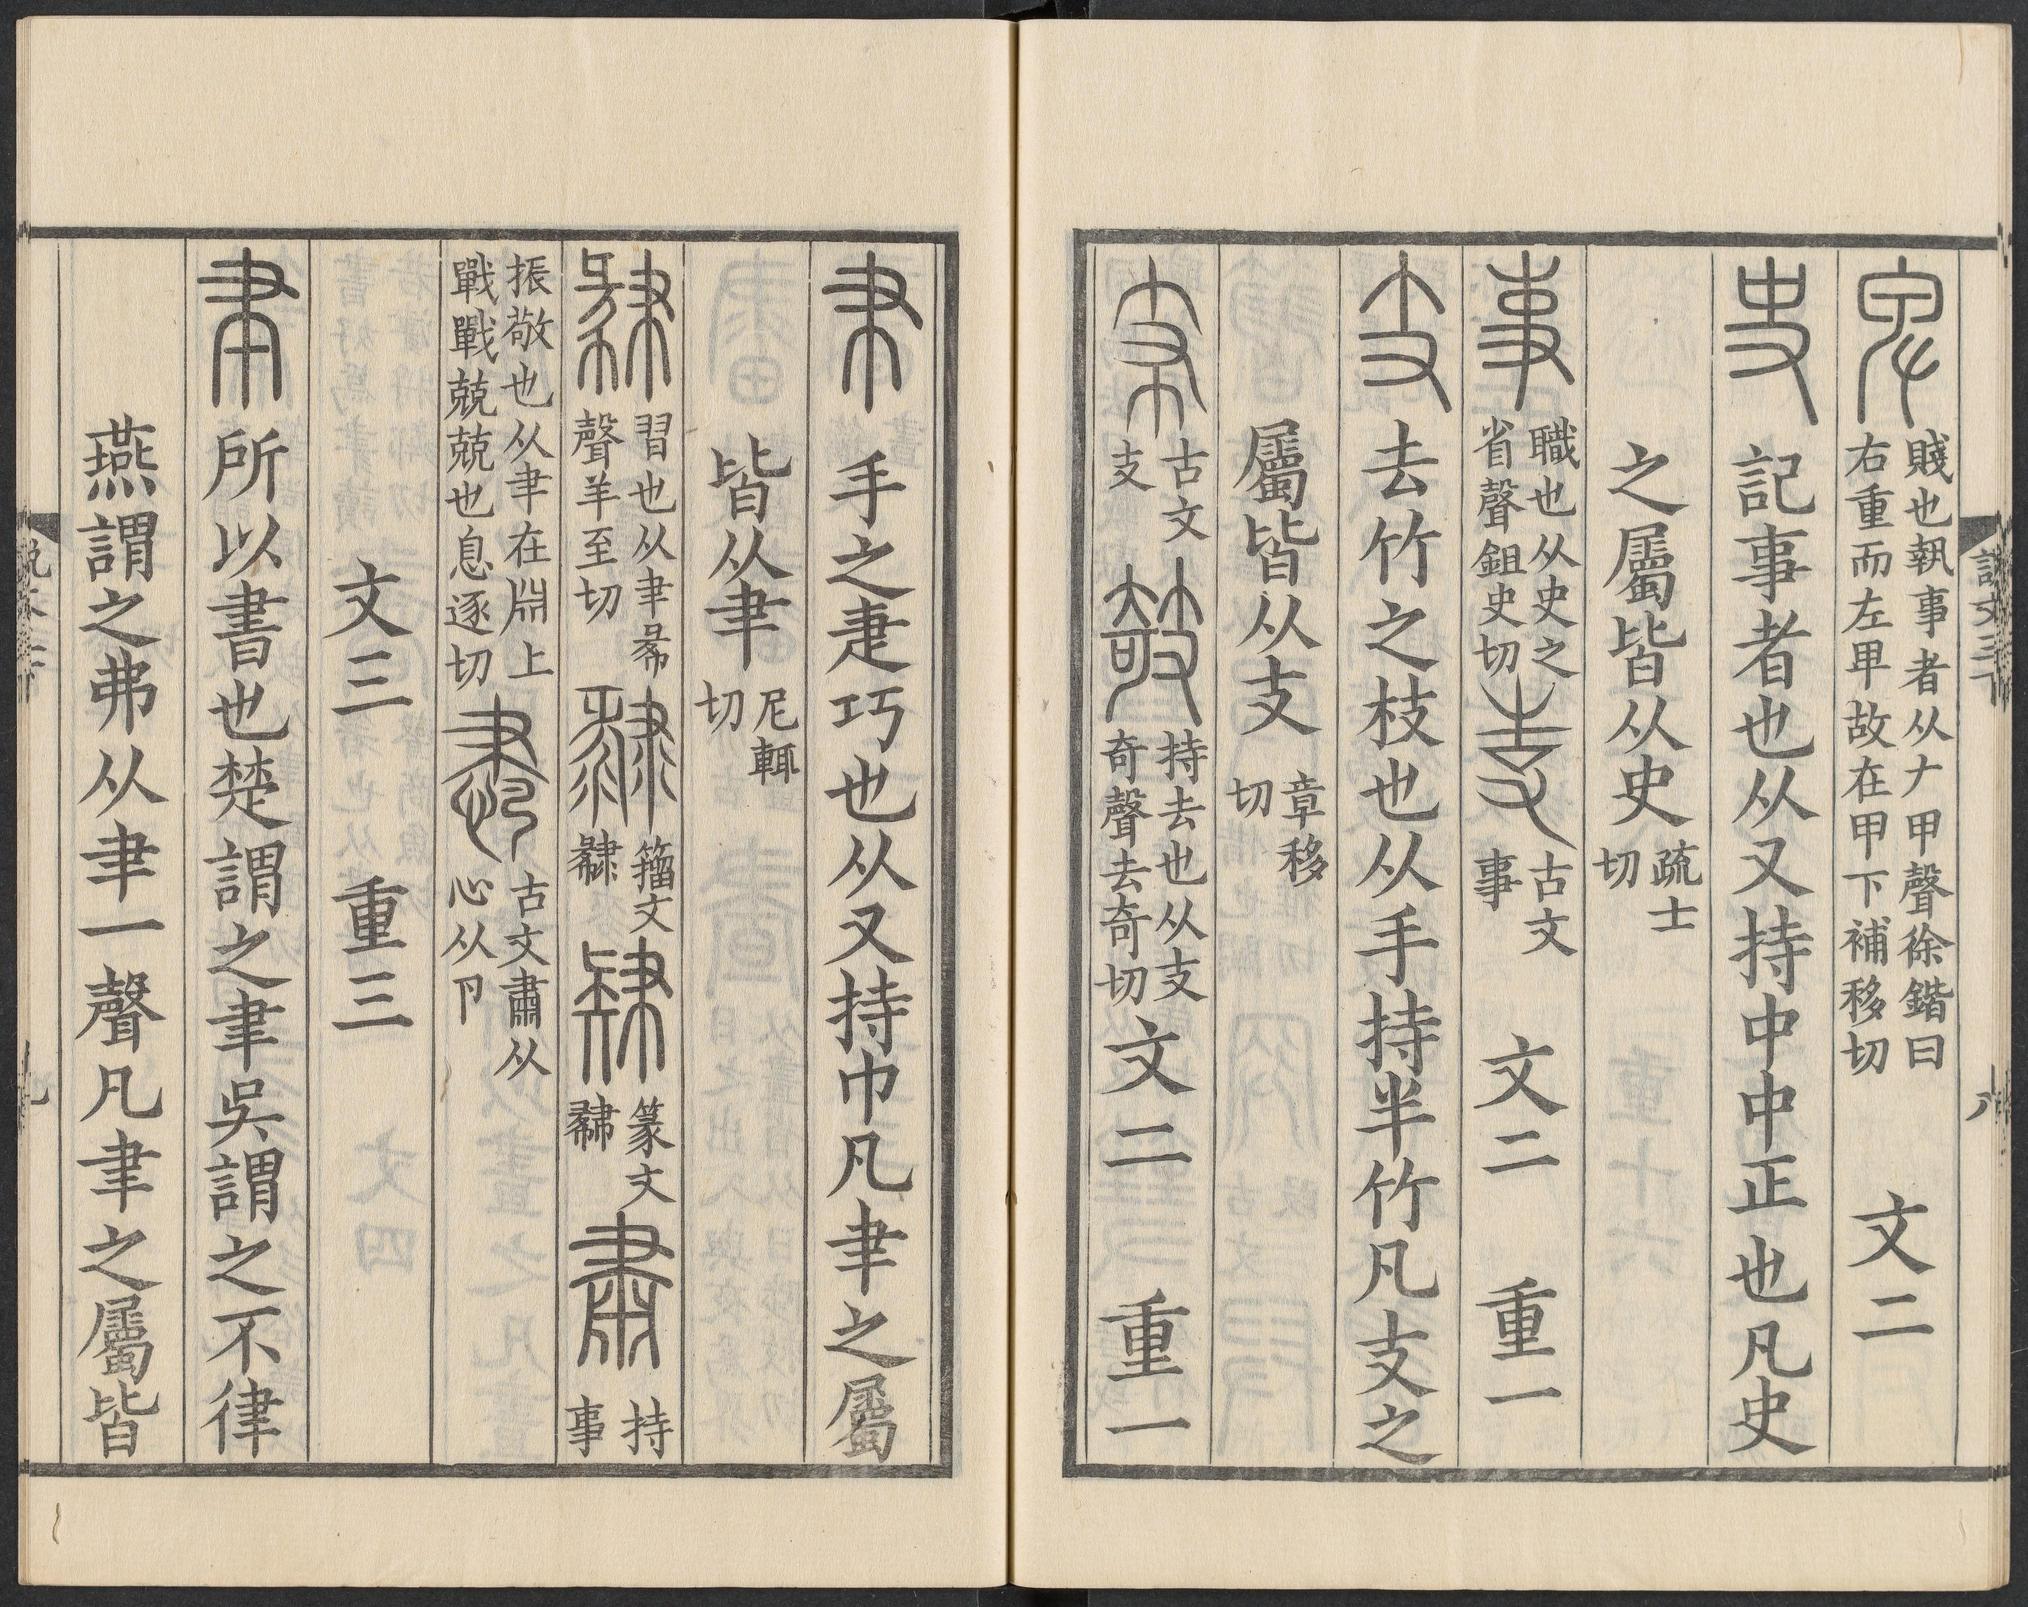 卑賤也執事者从𠂇甲聲徐鍇曰右重而左卑故在甲下補移切 文二
史記事者也从又持中中正也凡史
之屬皆从史疏士切
事職也从史之省聲鉏史切𠭏古文事 文二 重一
支去竹之枝也从手持半竹凡支之
屬皆从支章移切
𠦙古文支𢻪持去也从支奇聲去奇切文二 重一
𦘒手之疌巧也从又持巾凡𦘒之屬
皆从𦘒尼輒切
𦘘習也从𦘒㣇聲羊至切籀文𦘘篆文𦘘肅持事
振敬也从𦘒在𣶒上戰戰兢兢也息逐切古文肅从心从卪
文三 重三
聿所以書也楚謂之聿吳謂之不律
燕謂之弗从𦘒一聲凡聿之屬皆